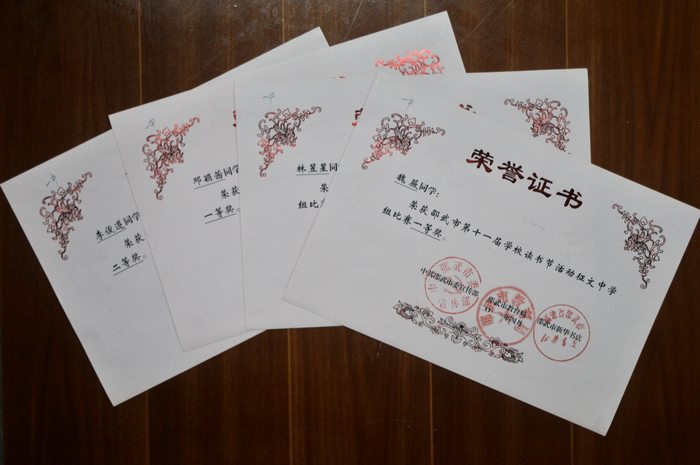 李俊逵同学
荣获
二等奖。
邓颖茜同学
荣获
一等奖。
林昱星同
荣
组比赛
荣誉证书
魏薇同学：
荣获邵武市第十一届学校读书节活动征文中学
组比赛一等奖。
中共邵武市委宣传部
邵武市教育局
邵武市新华书店
年四月